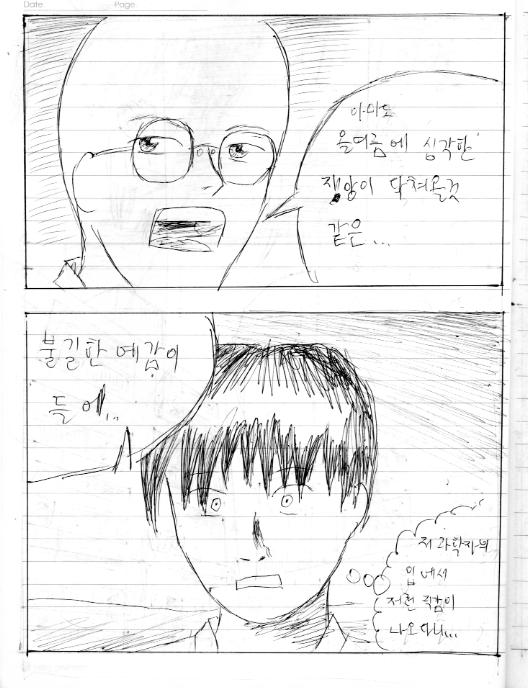 Date
Page
아마도
올여름에 심각한
재앙이 닥쳐올것
같은...
불길한 예감이
들어..
저 과학자의
입에서
저런 직감이
나오다니...